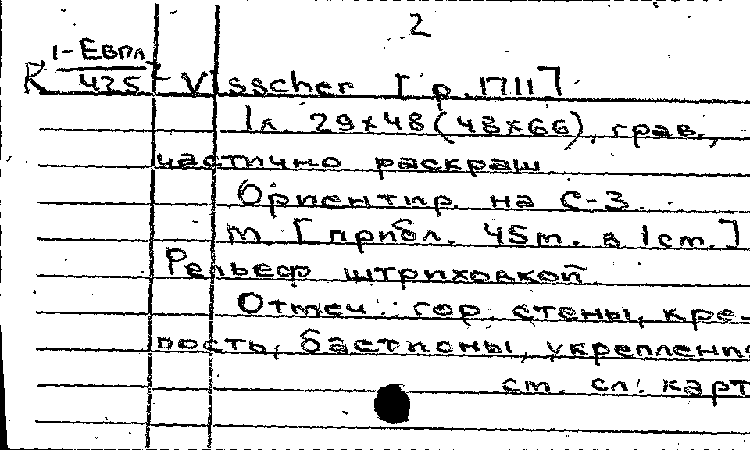 2
К 1-Евпл
425 Visscher [p.1711]
1л. 29х48(48х66), грав.,
частично раскраш.
Ориентир. на С-З.
м. [прибл. 45м. в 1см.]
Рельеф штриховкой.
Отмеч.: гор. стены, кре-
пость, бастионы, укреплени
см. сл. карт